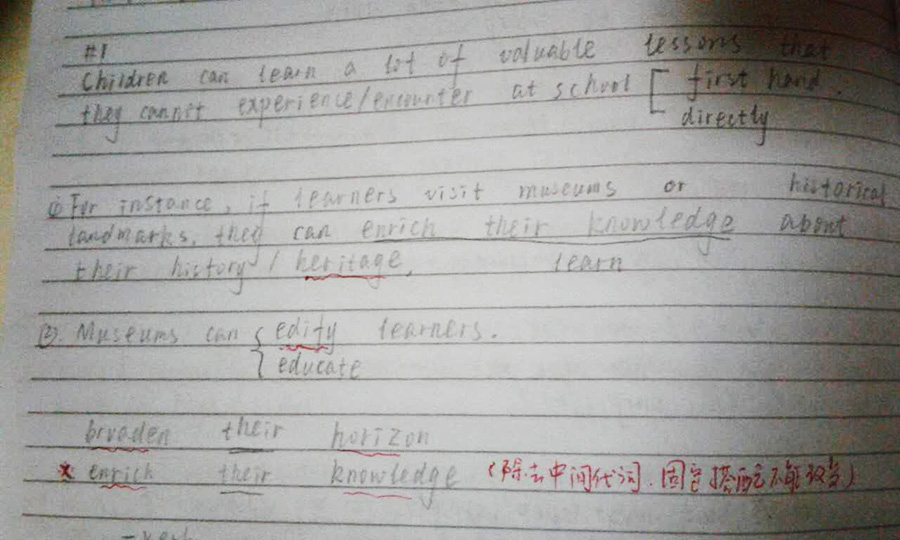 #1
Children can learn a lot of valuable lessons that
they cannot experience/encounter at school [ first hand.
directly
① For instance, if learners visit museums or historical
landmarks, they can enrich their knowledge about
their history/heritage. learn
②. Museums can { edify learners.
{ educate
broaden their horizon
* enrich their knowledge (除去中间代词.固定搭配不能改变)